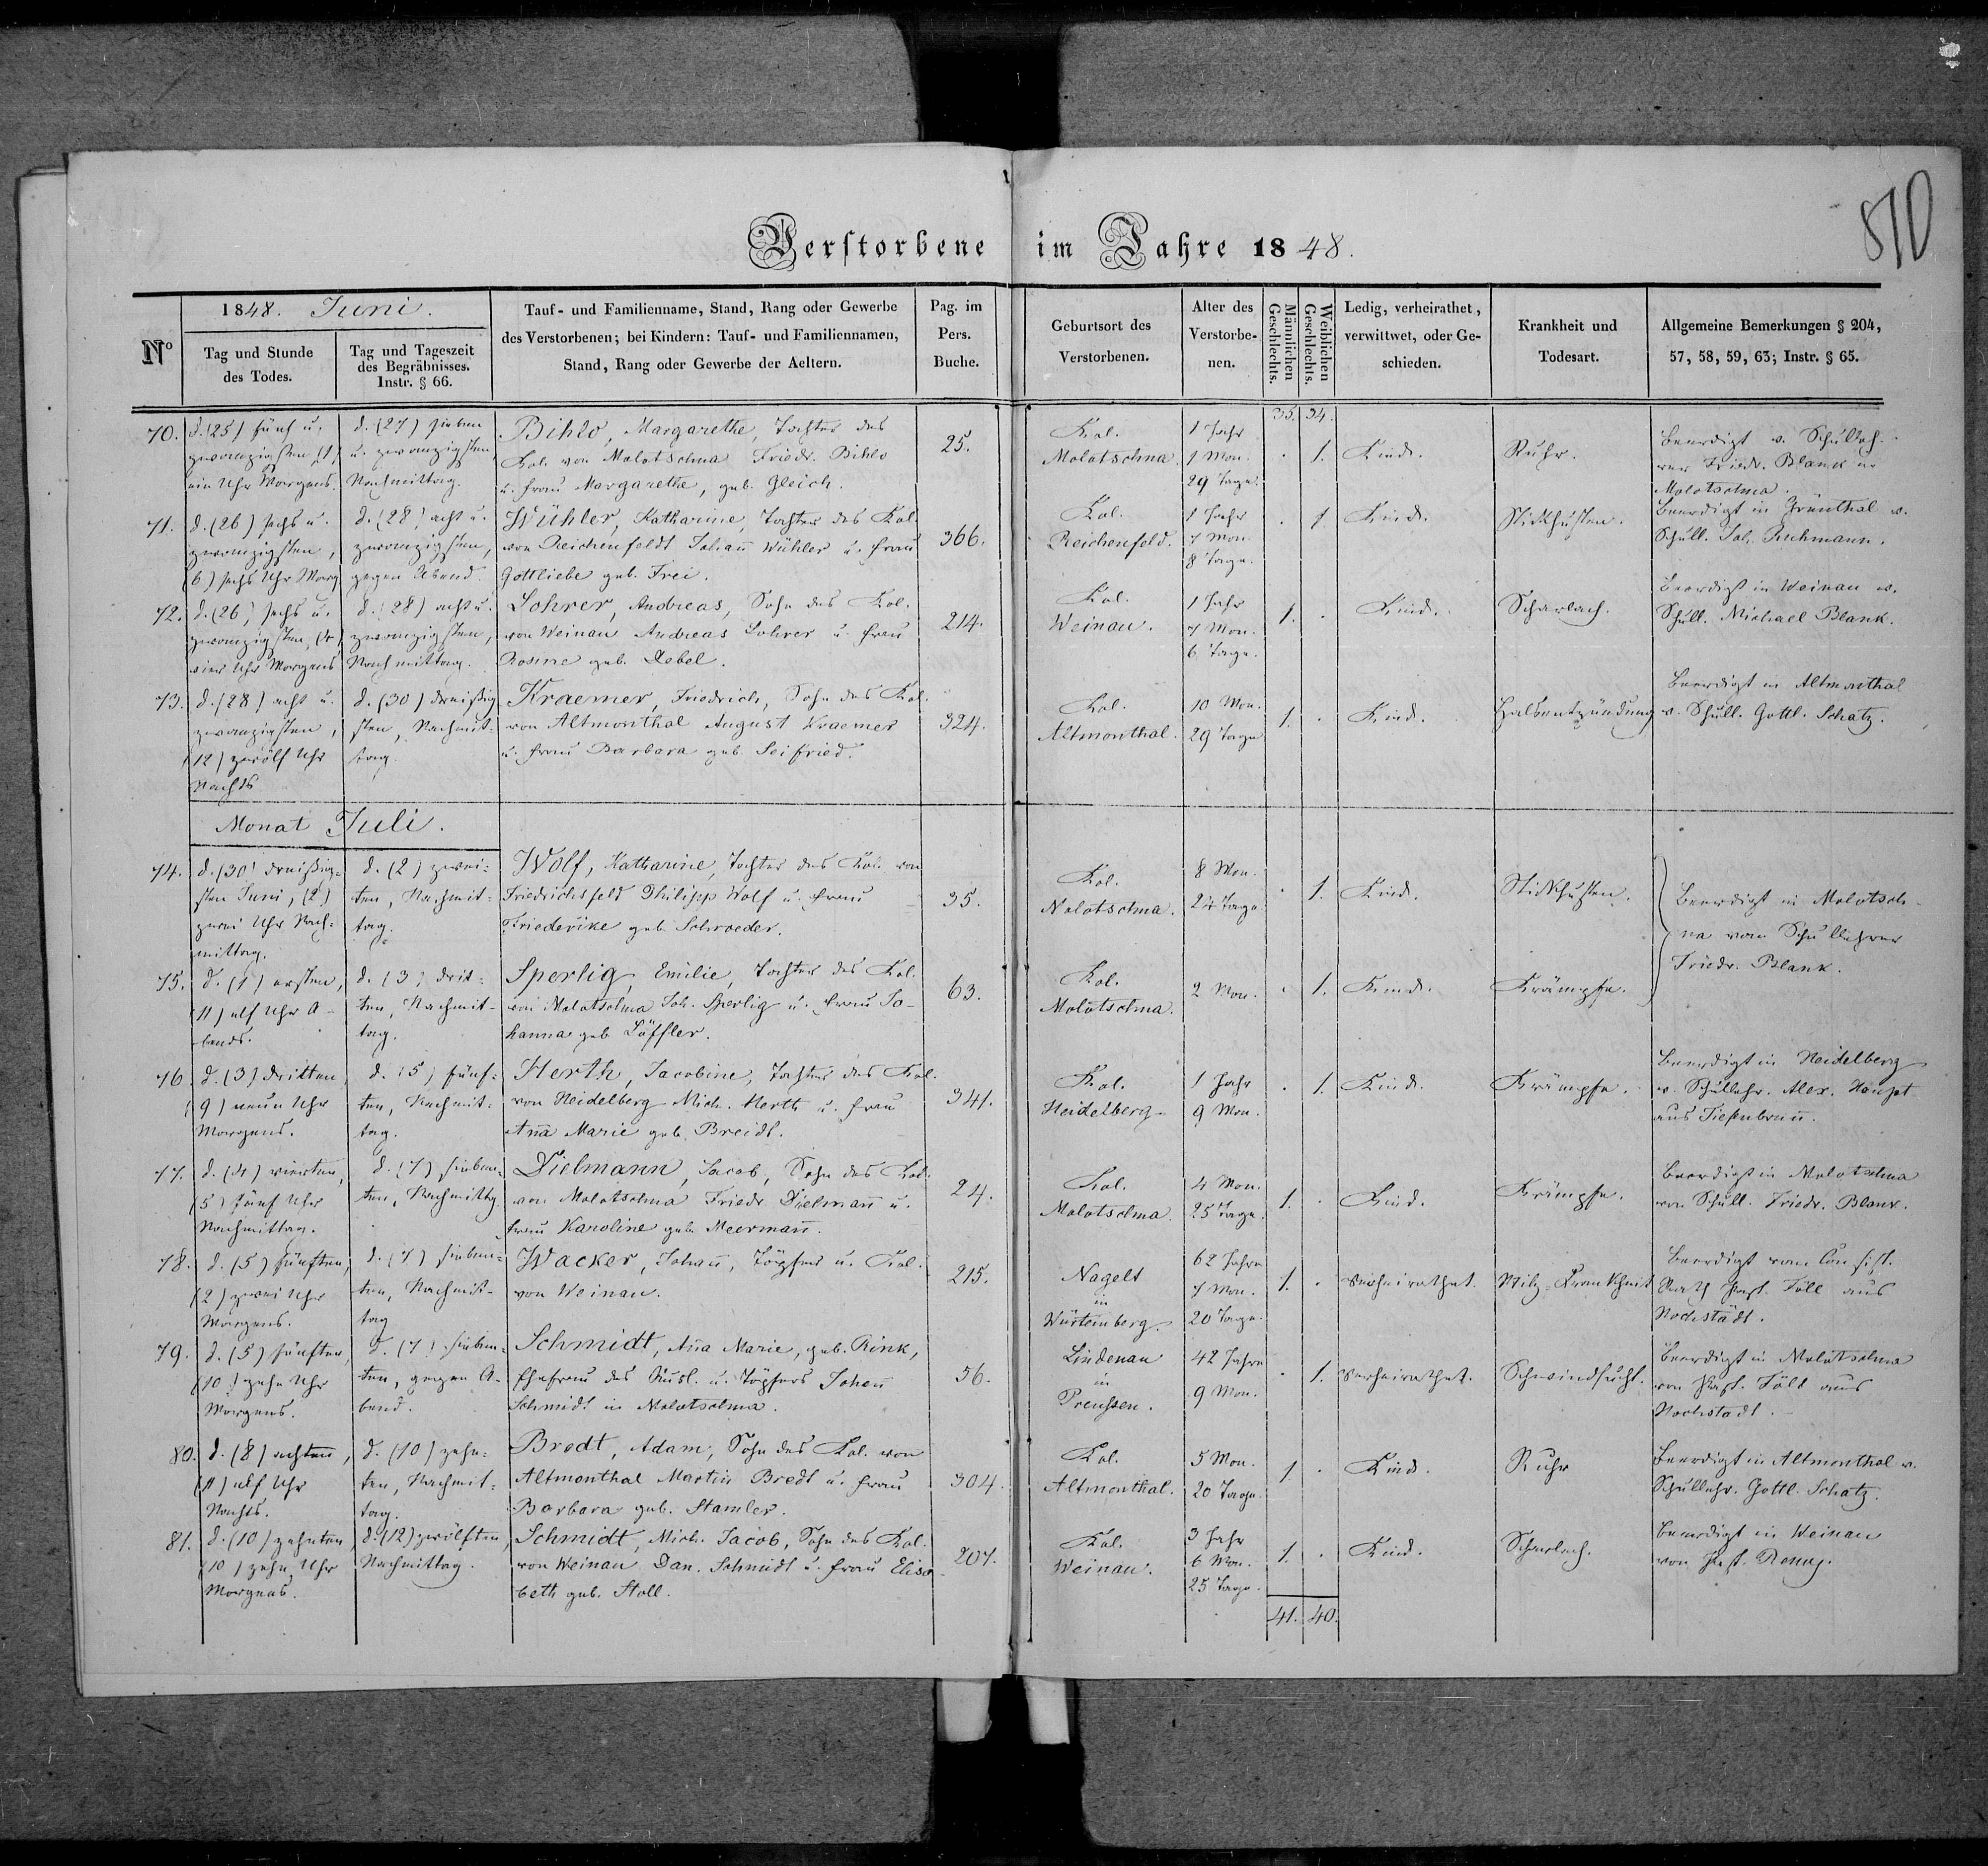 810
Verstorbene im Jahre 1848.
Nº
1848. Juni.
Tag und Stunde
des Todes.
Tag und Tageszeit
des Begräbnisses.
Instr. § 66.
Tauf- und Familienname, Stand, Rang oder Gewerbe
des Verstorbenen; bei Kindern: Tauf- und Familiennamen,
Stand, Rang oder Gewerbe der Aeltern.
Pag. im
Pers.
Buche.
Geburtsort des
Verstorbenen.
Alter des
Verstorbe-
nen.
Männlichen
Geschlechts.
Weiblichen
Geschlechts.
Ledig, verheirathet,
verwittwet, oder Ge-
schieden.
Krankheit und
Todesart.
Allgemeine Bemerkungen § 204,
57, 58, 59, 63; Instr. § 65.
35. 34.
70.
d. (25) fünf u.
zwanzigsten (1)
ein Uhr Morgens.
d. (27) sieben
u. zwanzigsten,
Nachmittag.
Bihlo, Margarethe, Tochter des
Kol. von Molotschna Friedr. Bihlo
u. Frau Margarethe, geb. Gleich.
25.
Kol.
Molotschna.
1 Jahr
1 Mon.
29 Tage.
1.
Kind.
Ruhr.
Beerdigt v. Schulleh-
rer Friedr. Blank in
Molotschna.
71.
d. (26) sechs u.
zwanzigsten,
(6) sechs Uhr Morg.
d. (28) acht u.
zwanzigsten,
gegen Abend.
Wühler, Katharine, Tochter des Kol.
von Reichenfeldt Johañ Wühler u. Frau
Gottliebe geb. Frei.
366.
Kol.
Reichenfeld.
1 Jahr
7 Mon.
8 Tage.
1
Kind.
Stickhusten.
Beerdigt in Grünthal v.
Schull. Joh. Ruhmann.
72.
d. (26) sechs u.
zwanzigsten, (4)
vier Uhr Morgens
d. (28) acht u.
zwanzigsten,
Nachmittag.
Lohrer, Andreas, Sohn des Kol.
von Weinau Andreas Lohrer u. Frau
Rosine geb. Debel.
214.
Kol.
Weinau.
1 Jahr
7 Mon.
6 Tage.
1.
Kind.
Scharlach.
Beerdigt in Weinau v.
Schull. Michael Blank.
73.
d. (28) acht u.
zwanzigsten,
(12) zwölf Uhr
Nachts
d. (30) dreißig-
sten, Nachmit-
tag.
Kraemer, Friedrich, Sohn des Kol.
von Altmonthal August Kraemer
u. Frau Barbara geb. Seifried.
324.
Kol.
Altmonthal.
10 Mon.
29 Tage
1.
Kind.
Halsentzündung
Beerdigt in Altmonthal
v. Schull. Gottl. Schatz.
Monat Juli.
74.
d. (30) dreißig-
sten Juni, (2)
zwei Uhr Nach-
mittag.
d. (2) zwei-
ten, Nachmit-
tag.
Wolf, Katharine, Tochter des Kol. von
Friedrichsfeld Philipp Wolf u. Frau
Friederike geb. Schroeder.
35.
Kol.
Molotschna.
8 Mon.
24 Tage
1.
Kind.
Stickhusten.
Beerdigt in Molotsch-
na vom Schullehrer
Friedr. Blank.
75.
d. (1) ersten,
(11) elf Uhr A-
bends.
d. (3) drit-
ten, Nachmit-
tag.
Sperlig, Emilie, Tochter des Kol.
von Molotschna Joh. Sperlig u. Frau Jo-
hanna geb. Löffler.
63.
Kol.
Molotschna.
2 Mon.
1.
Kind.
Krämpfe.
76.
d. (3) dritten,
(9) neun Uhr
Morgens.
d. (5) fünf-
ten, Nachmit-
tag.
Herth, Jacobine, Tochter des Kol.
von Heidelberg Mich. Herth u. Frau
Aña Marie geb. Breidt.
341.
Kol.
Heidelberg.
1 Jahr
9 Mon.
1.
Kind.
Krämpfe.
Beerdigt in Heidelberg
v. Schullehr. Alex. Haupt
aus Tiefenbruñ.
77.
d. (4) vierten,
(5) fünf Uhr
Nachmittag.
d. (7) sieben-
ten, Nachmittg.
Dielmann, Jacob, Sohn des Kol.
von Molotschna Friedr. Dielmañ u.
Frau Karoline geb. Meermañ.
24.
Kol.
Molotschna.
4 Mon.
25 Tage.
1.
Kind.
Krämpfe.
Beerdigt in Molotschna
von Schull. Friedr. Blank.
78.
d. (5) fünften,
(2) zwei Uhr
Morgens.
d. (7) sieben-
ten, Nachmit-
tag
Wacker, Johañ, Töpfer u. Kol.
von Weinau.
215.
Nagelt
in
Würtemberg.
62 Jahre
7 Mon.
20 Tage.
1.
Verheirathet.
Milz-Krankheit
Beerdigt vom Consist.
Rath Past. Föll aus
Hochstädt.
79.
d. (5) fünften,
(10) zehn Uhr
Morgens.
d. (7) sieben-
ten, gegen A-
bend.
Schmidt, Aña Marie, geb. Rink,
Ehefrau des Ausl. u. Töpfers Johañ
Schmidt in Molotschna.
56.
Lindenau
in
Preussen.
42 Jahre
9 Mon.
1.
Verheirathet.
Schwindsucht.
Beerdigt in Molotschna
von Past. Föll aus
Hochstadt.
80.
d. (8) achten,
(11) elf Uhr
Nachts.
d. (10) zehn-
ten, Nachmit-
tag.
Bredt, Adam, Sohn des Kol. von
Altmonthal Martin Bredt u. Frau
Barbara geb. Stamler.
304.
Kol.
Altmonthal.
5 Mon.
20 Tage.
1.
Kind.
Ruhr
Beerdigt in Altmonthal v.
Schullehr. Gottl. Schatz.
81.
d. (10) zehnten,
(10) zehn Uhr
Morgens.
d. (12) zwölften,
Nachmittag.
Schmidt, Mich. Jacob, Sohn des Kol.
von Weinau Dan. Schmidt u. Frau Elisa-
beth geb. Stoll.
207.
Kol.
Weinau.
3 Jahr
6 Mon.
25 Tage.
1.
Kind.
Scharlach.
Beerdigt in Weinau
von Past. Remy.
41. 40.